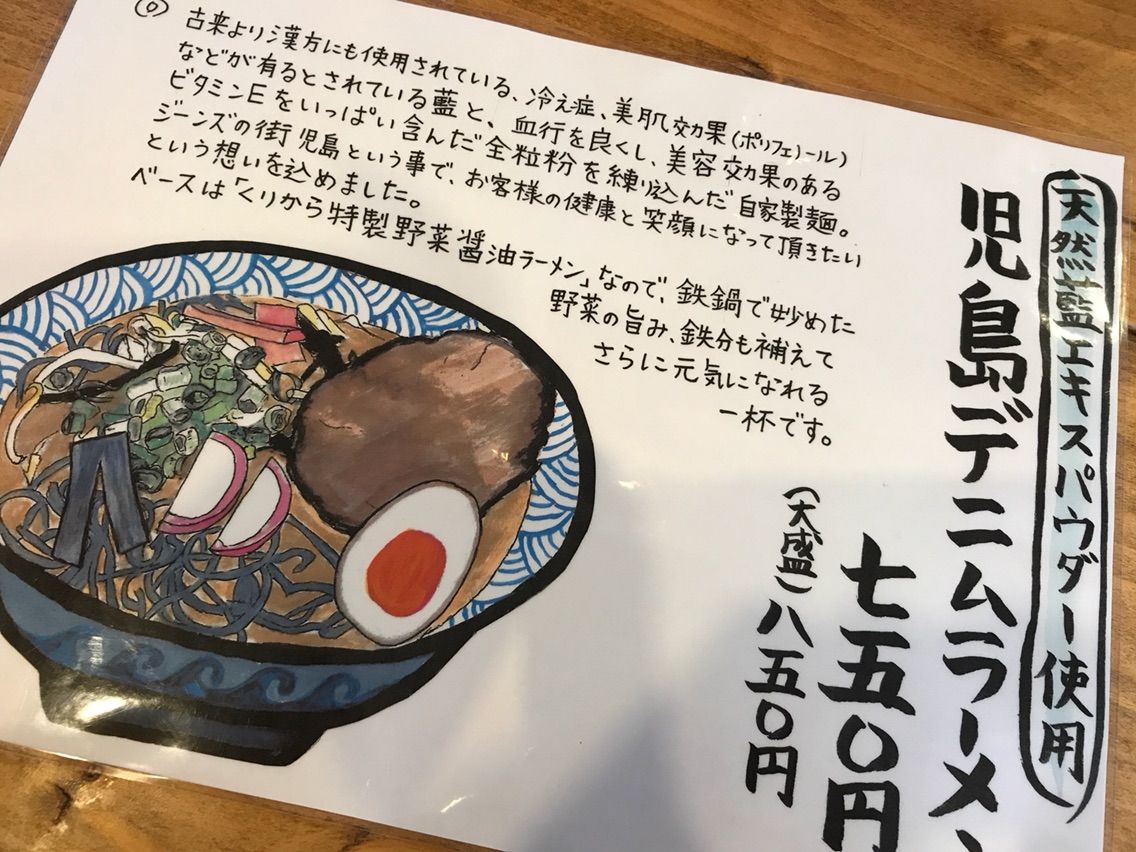 天然藍エキスパウダー使用
児島デニムラーメン
七五〇円
(大盛)八五〇円
古来より漢方にも使用されている、冷え症、美肌効果(ポリフェノール)
などが有るとされている藍と、血行を良くし、美容効果のある
ビタミンEをいっぱい含んだ全粒粉を練り込んだ自家製麺。
ジーンズの街児島という事で、お客様の健康と笑顔になって頂きたい
という想いを込めました。
ベースは「くりから特製野菜醤油ラーメン」なので、鉄鍋で炒めた
野菜の旨み、鉄分も補えて
さらに元気になれる
一杯です。